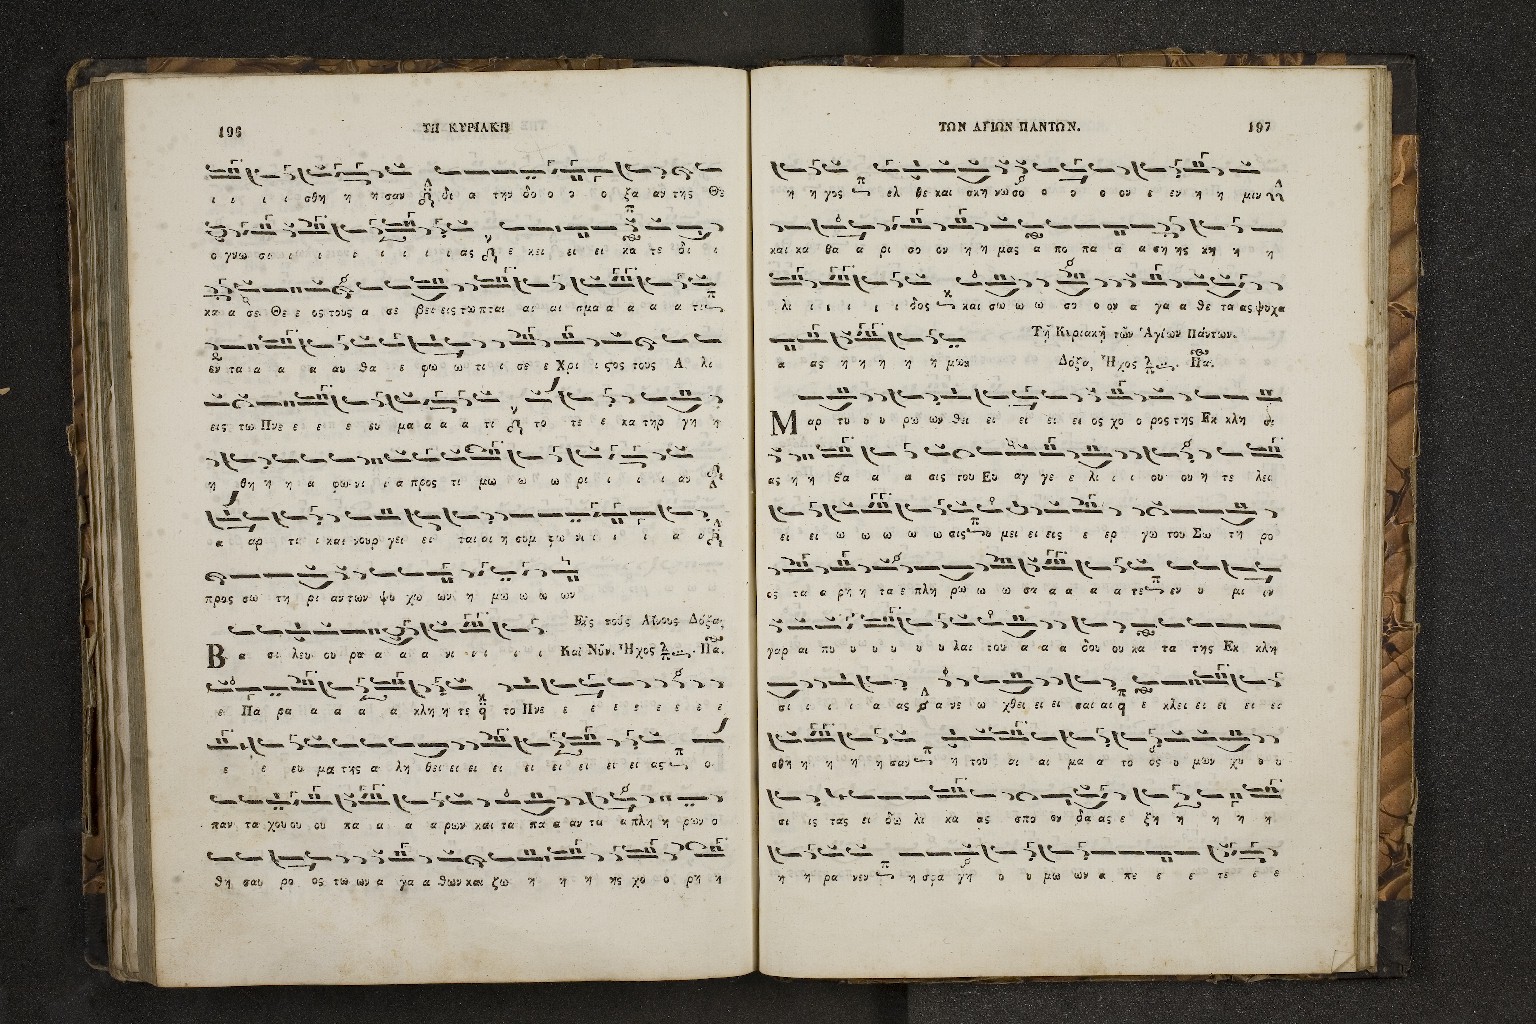 196
ΤΗ ΚΥΡΙΑΚΗ
ι ι ι ι σθη η η σαν δι α την δο ο ο ο ξα αν της Θε
ο γνω σι ι ι ι ι ι ι ας ε κει ει ει κα τε δι ι
κα α σε Θε ε ος τους α σε βεις εις τω πται αι αι σμα α α α α τι
εν τα α α α αυ θα ε φω ω τι ι σε ε Χρι ι ςος τους Α λι
εις τω Πνε ε ε ε ευ μα α α α τι το τε ε κα τηρ γη η
η θη η η α φω νι ι α προς τι μω ω ω ρι ι ι ι αν
α αρ τι ι και νουρ γει ει ται οι η συμ φω νι ι ι ι α α
προς σω τη ρι αν των ψυ χω ων η μω ω ω ων
Εἰς τοὺς Αἴνους Δόξα,
Β α σι λευ ου ρα α α α νι ι ι ι ι Καὶ Νῦν. Ἦχος Πα.
ε Πα ρα α α α α κλη η τε το Πνε ε ε ε ε ε ε ε
ε ε ευ μα της α λη θει ει ει ει ει ει ει ει ει ας ο
παν τα χου ου ου πα α α α ρων και τα πα α αν τα α πλη η ρων ο
θη σαυ ρο ος τω ων α γα α θων και ζω η η η ης χο ο ρη η
ΤΩΝ ΑΓΙΩΝ ΠΑΝΤΩΝ.
197
η η γος ελ θε και σκη νω σο ο ο ο ον ε εν η η μιν
και κα θα α ρι σο ον η η μας α πο πα α α ση ης κη η η
λι ι ι ι ι δος και σω ω ω σο ο ον α γα α θε τα ας ψυχα
α ας η η η η η μων
Τῇ Κυριακῇ τῶν Ἁγίων Πάντων.
Δόξα, Ἦχος Πα.
Μ αρ τυ υ υ ρω ων θει ει ει ει ει ος χο ο ρος της Εκ κλη σι
ας η η βα α α σις του Ευ αγ γε ε λι ι ι ου ου η τε λει
ει ει ω ω ω ω ω σις υ μει ει εις ε ερ γω του Σω τη ρο
ος τα α ρη η τα ε πλη ρω ω ω σα α α α α τε εν υ μι ιν
γαρ αι πυ υ υ υ υ λαι του α α α δου ου κα τα της Εκ κλη
σι ι ι ι α ας α νε ω χθει ει ει σαι αι ε κλει ει ει ει ει
σθη η η η η σαν η του αι αι μα α το ος υ μων χυ υ υ
σι ις τας ει δω λι κα ας σπο ον δα ας ε ξη η η η η
η η ρα νεν η σφα γη ο υ μω ων α πε ε ε τε ε ε